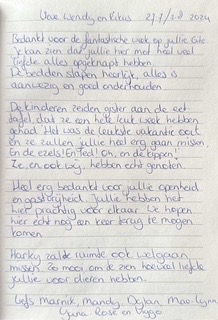 Lieve Wendy en Rikus 27/7/2-8 2024
Bedankt voor de fantastische week op jullie Gîte
Je kan zien dat jullie hier met heel veel
liefde alles opgeknapt hebben.
De bedden slapen heerlijk, alles is
aanwezig en goed onderhouden.
De kinderen zeiden gister aan de eet
tafel, dat ze een hele leuk week hebben
gehad. Het was de leukste vakantie ooit
en ze zullen jullie heel erg gaan missen.
En de ezels! En Ted! Oh, en de kippen!
Ze, en ook wij, hebben echt genoten.
Heel erg bedankt voor jullie openheid
en gastvrijheid. Jullie hebben het
hier prachtig voor elkaar. We hopen
hier echt nog een keer terug te mogen
komen.
zal de ruimte ook wel gaan
missen. Zo mooi om te zien hoeveel liefde
jullie voor dieren hebben.
Liefs Marnik, Mandy, Dylan,
Yuna Rose en